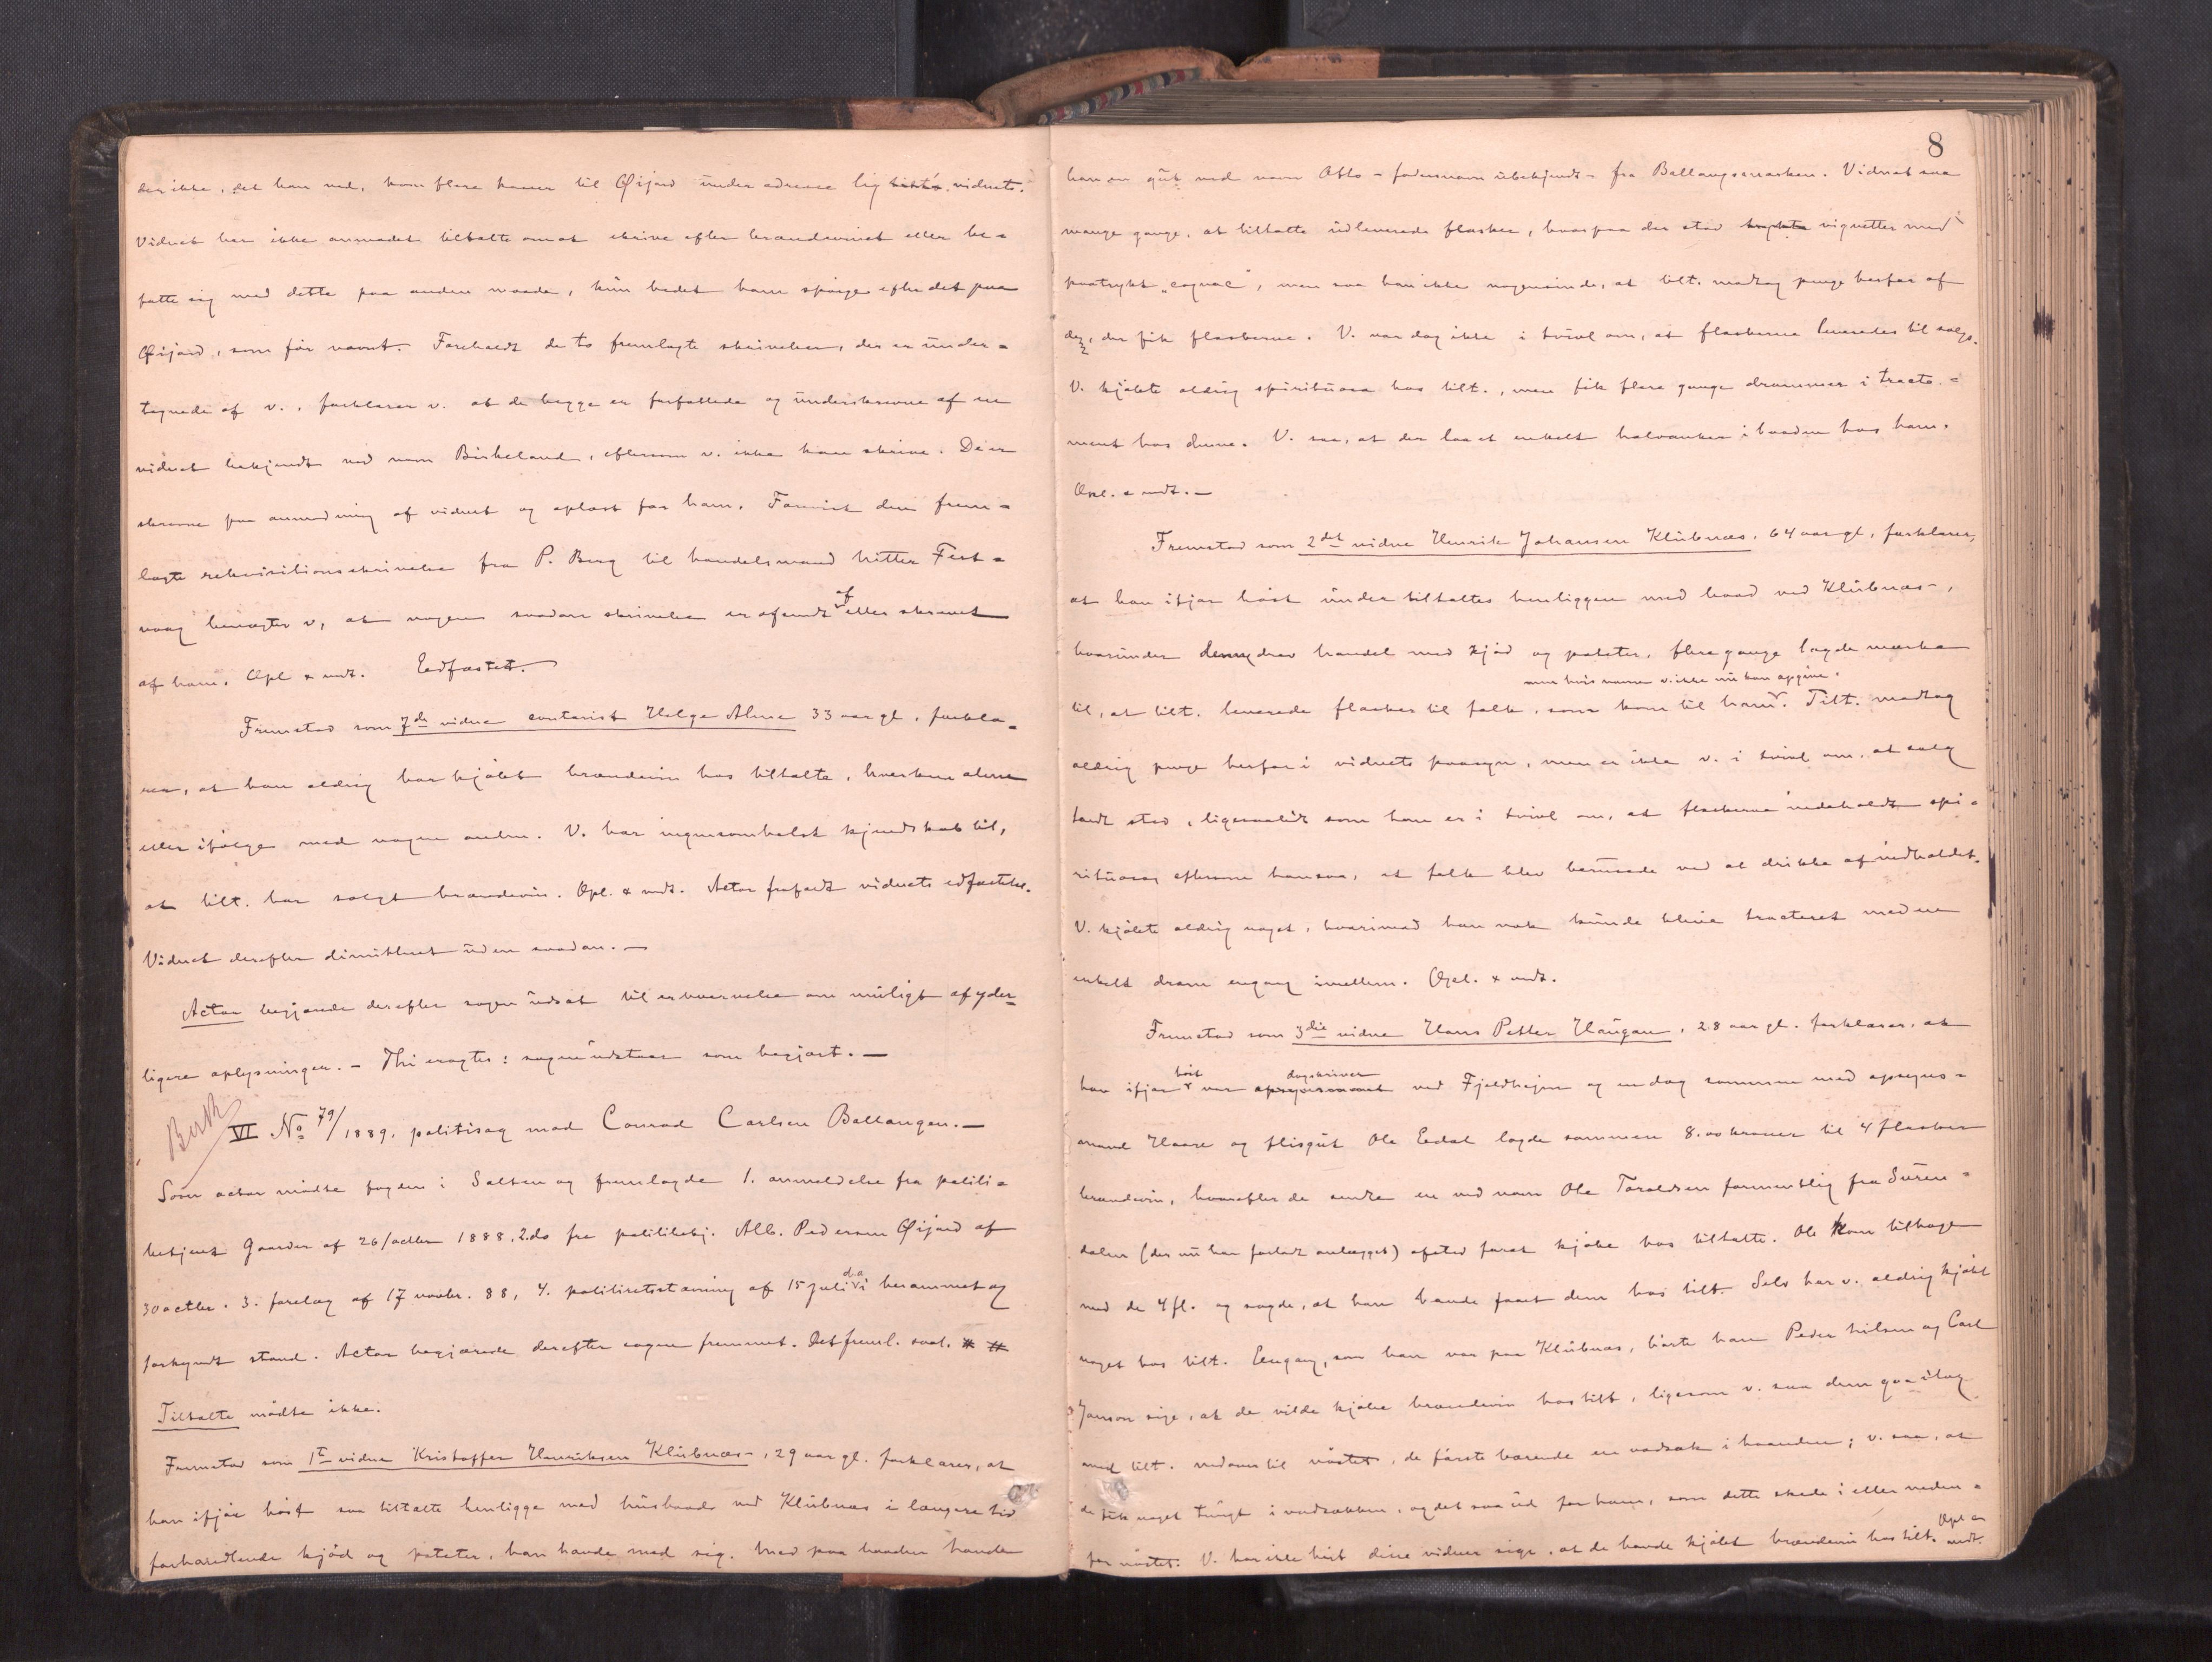 der ikke, det han ved, kom flere kaner til Øijord under adresse lig vidnets.
Vidnet har ikke anmodet tiltalte om at skrive efter brændevinet eller be-
fatte sig med dette paa anden maade, kun bedet ham spørge efter det paa
Øijord, som før nævnt. Foreholdt de to fremlagte skrivelser, der er under-
tegnede af v., forklarer v. at de begge er forfattede og underskrevne af en
vidnet bekjendt ved navn Birkeland, eftersom v. ikke kan skrive. De er
skrevne paa anmodning af vidnet og oplæst for ham. Forevist den frem-
lagte rekvisitionsskrivelse fra P. Berg til handelsmand Fest-
vaag benægter v, at nogen saadan skrivelse er afsendt af eller skrevet
af ham. Opl & vedt. Eedfæstet.
Fremstod som 7de vidne contorist Helge Alme 33 aar gl, forkla-
rer, at han aldrig har kjøbt brændevin hos tiltalte, hverken alene
eller ifølge med nogen anden. V. har ingensomhelst kjendskab til,
at tilt. har solgt brændevin. Opl. & vedt. Actor frafaldt vidnets edfæstelse.
Vidnet derefter dimitteret uden saadan.—
Actor begjærede derefter sagen udsat til erhvervelse om muligt af yder-
ligere oplysninger. — Thi eragtes: sagen udstaar som begjært.—
VI No 79/1889, politisag mod Conrad Carlsen Ballangen.—
Som actor mødte fogden i Salten og fremlagde 1. anmeldelse fra politi-
betjent Gaarder af 26/octbr 1888, 2. do fra politibetj. Alb. Pedersen Øijord af
30 octbr. 3. forelæg af 17 novbr. 88, 4. politiretsstævning af 15 juli d.a. i berammet og
forkyndt stand. Actor begjærede derefter sagen fremmet. Det freml. saal.
Tiltalte mødte ikke.
Fremstod som 1te vidne Kristoffer Henriksen Klubnæs, 29 aar gl. forklarer, at
han ifjor høst saa tiltalte henligge med husbaad ved Klubnæs i længere tid
forhandlende kjød og poteter, han havde med sig. Med paa baaden havde
8
han en gut ved navn Otto - fadernavn ubekjendt - fra Ballangsmarken. Vidnet saa
mange gange, at tiltalte udleverede flasker, hvorpaa der stod vignetter med
paatrykt „cognac", men saa han ikke nogensinde, at tilt. modtog penge herfor af
dem, der fik flaskerne. V. var dog ikke i tvivl om, at flaskerne leveredes til salgs.
V. kjøbte aldrig spirituosa hos tilt., men fik flere gange drammer i tracte-
ment hos denne. V. saa, at der laa et enkelt halvanker i baaden hos ham.
Opl. & vedt.—
Fremstod som 2det vidne Henrik Johansen Klubnæs, 64 aar gl, forklarer,
at han ifjor høst under tiltaltes henliggen med baad ved Klubnæs,
hvorunder denne drev handel med kjød og poteter, flere gange lagde mærke
men hvis navne v. ikke nu kan opgive.
til, at tilt. leverede flasker til folk, som kom til ham. Tilt. modtog
aldrig penge herfor i vidnets paasyn, men er ikke v. i tvivl om, at salg
fandt sted, ligesaalidt som han er i tvivl om, at flaskerne indeholdt spi-
rituosa, eftersom han saa, at folk blev berusede ved at drikke af indholdet.
V. kjøbte aldrig noget, hvorimod han nok kunde blive tracteret med en
enkelt dram engang imellem. Opl. & vedt.
Fremstod som 3die vidne Hans Petter Haugan, 28 aar gl. forklarer, at
han ifjor høst var dagskriver ved Fjeldhejen og en dag sammen med opsyns-
mand Haare og flisgut Ole Eedal lagde sammen 8.00 kroner til 4 flasker
brændevin, hvorefter de sendte en ved navn Ole Toraldsen formentlig fra Suren-
dalen (der nu har forladt anlægget) afsted forat kjøbe hos tiltalte. Ole kom tilbage
med de 4 fl. og sagde, at han havde faaet dem hos tilt. Selv har v. aldrig kjøbt
noget hos tilt. Engang, som han var paa Klubnæs, hørte han Peder Nilsen og Carl
Janson sige, at de vilde kjøbe brændevin hos tilt, ligesom v. saa dem gaa ilag
med tilt. nedover til nøstet, de første bærende en vadsæk i haanden; v. saa, at
de fik noget tungt i vadsækken, og det saa ud for ham, som dette skede i eller neden-
for nøstet. V. har ikke hørt disse vidner sige, at de havde kjøbt brændevin hos tilt. Opl. & vedt.